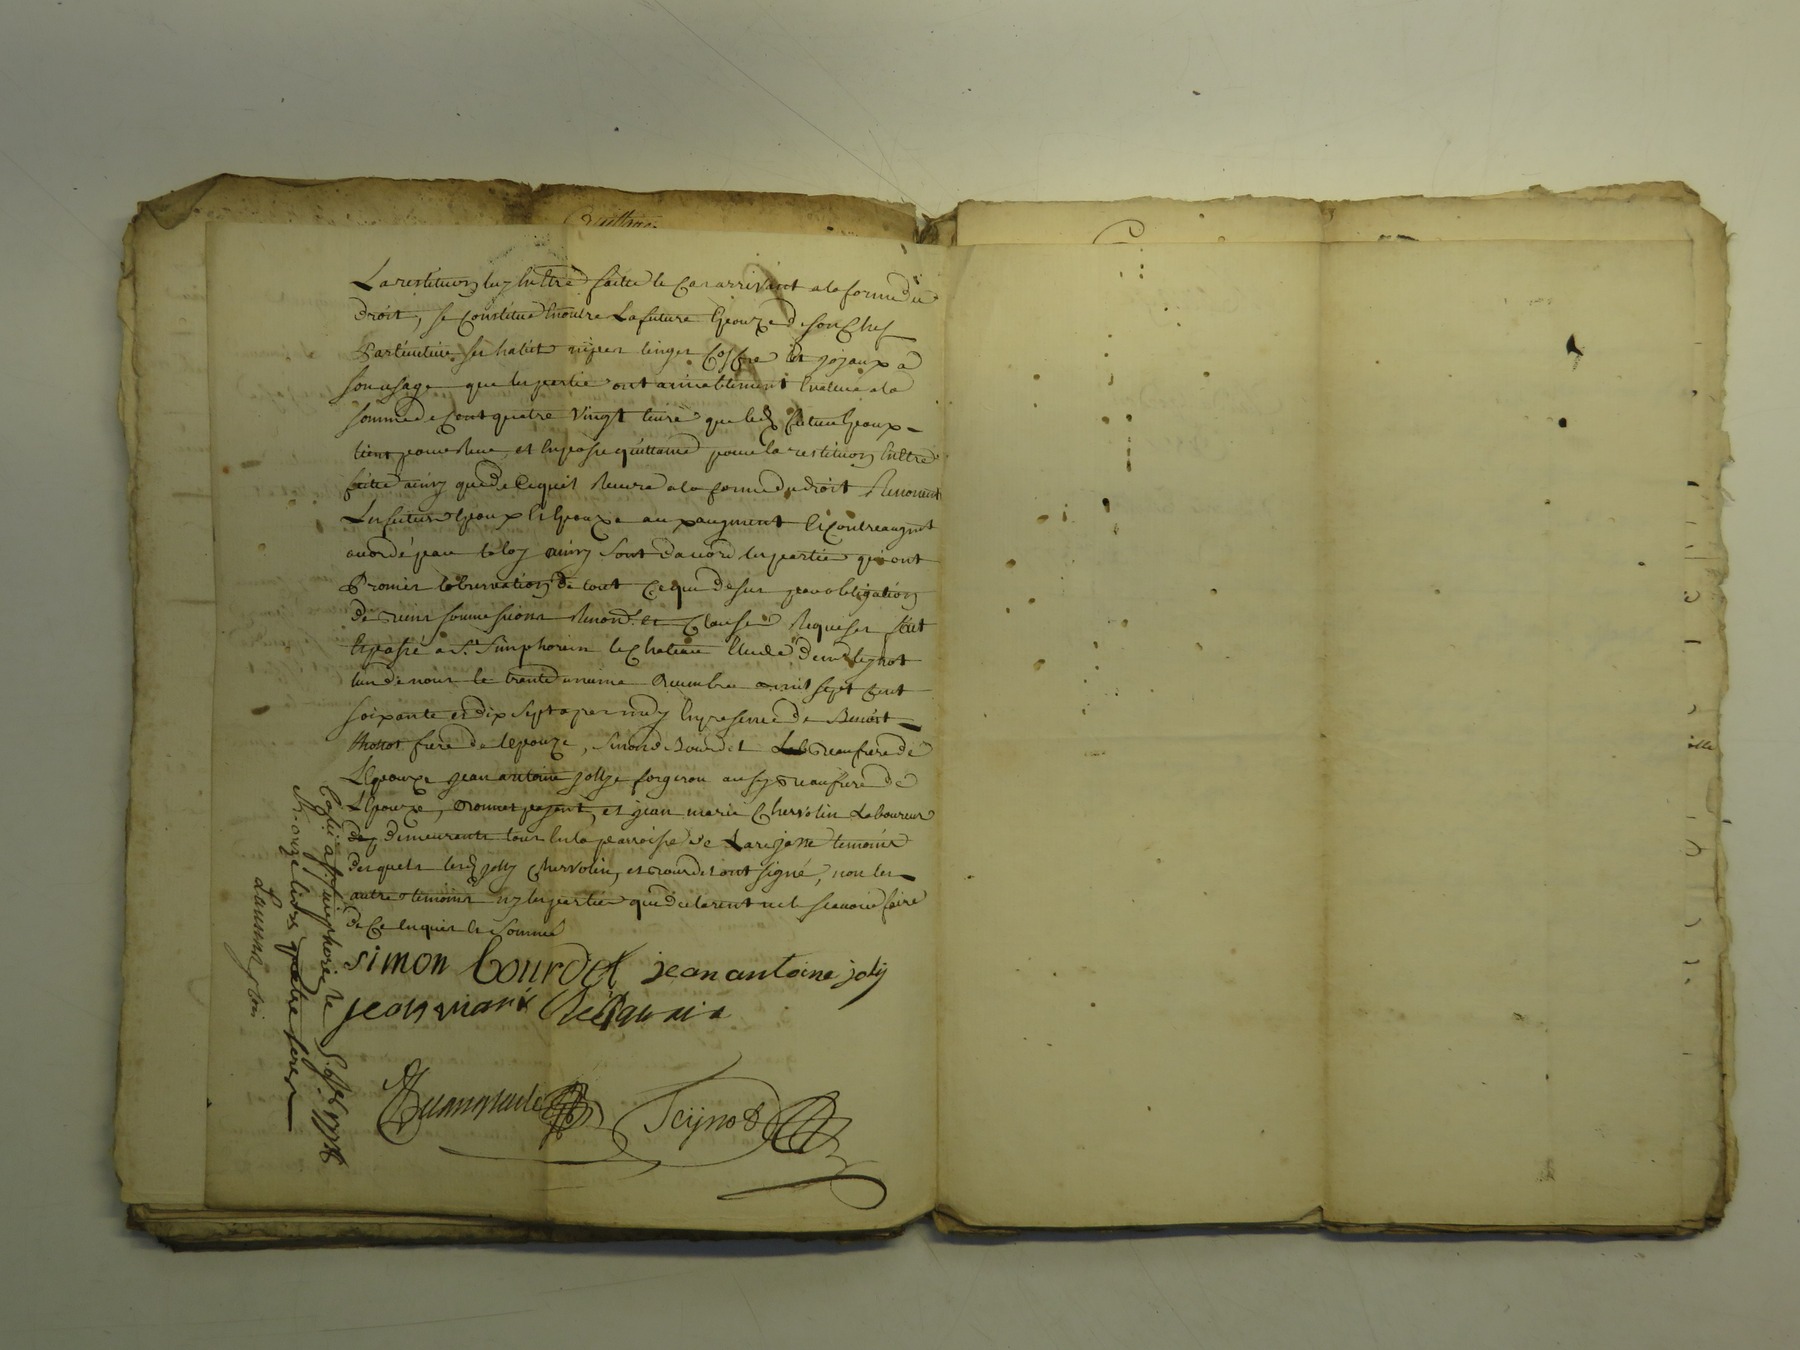 La restitution luy en Etre faitte le Cas arrivant a la forme du
droit, se Constitue Enoutre La future Epouze de son Chef
Particulier ses habits nipes linges Coffre Et joyaux a
son usage que les parties ont amiablement Evalué a la
somme de Cent quatre Vingt livres que led Futur Epoux
tient pour Reçue et En passe quittance pour la restitution En Etre
faitte ainsy que de Ce qu'il Recevra a la forme du droit Renoncent
Les futurs Epoux Et Epouze aux augment Et Contreaugmt
accordé par la loy ainsy sont d'accord les parties qui ont
Promis l'observation de tout Ce que dessus par obligation
de Biens soumissions Renon.s et Clauses Requises fait
Et passé a St Simphorien le Chateau Etude de me Peynot
l'un de nous le trente unieme Decembre mil sept Cent
soixante et dix sept apres midy En presence de Benoist
frere de lepouze, Simond Bourdet Beaufrere de
L'Epouze jean antoine jolly forgeron aussy Beaufrere de
L'Epouze, et jean marie Chervolin Laboureur
demeurants tous En la parroisse de Larajasse temoins
desquels lesd jolly Chervolin, et Bourdet ont signé, non les
autres temoins ny les parties qui declarent ne le scavoir faire
de Ce Enquis Et Sommés
simon bourdet jean antoine joly
jean marie
Peynot
St Simphorien le
R. onze livres quatre sols